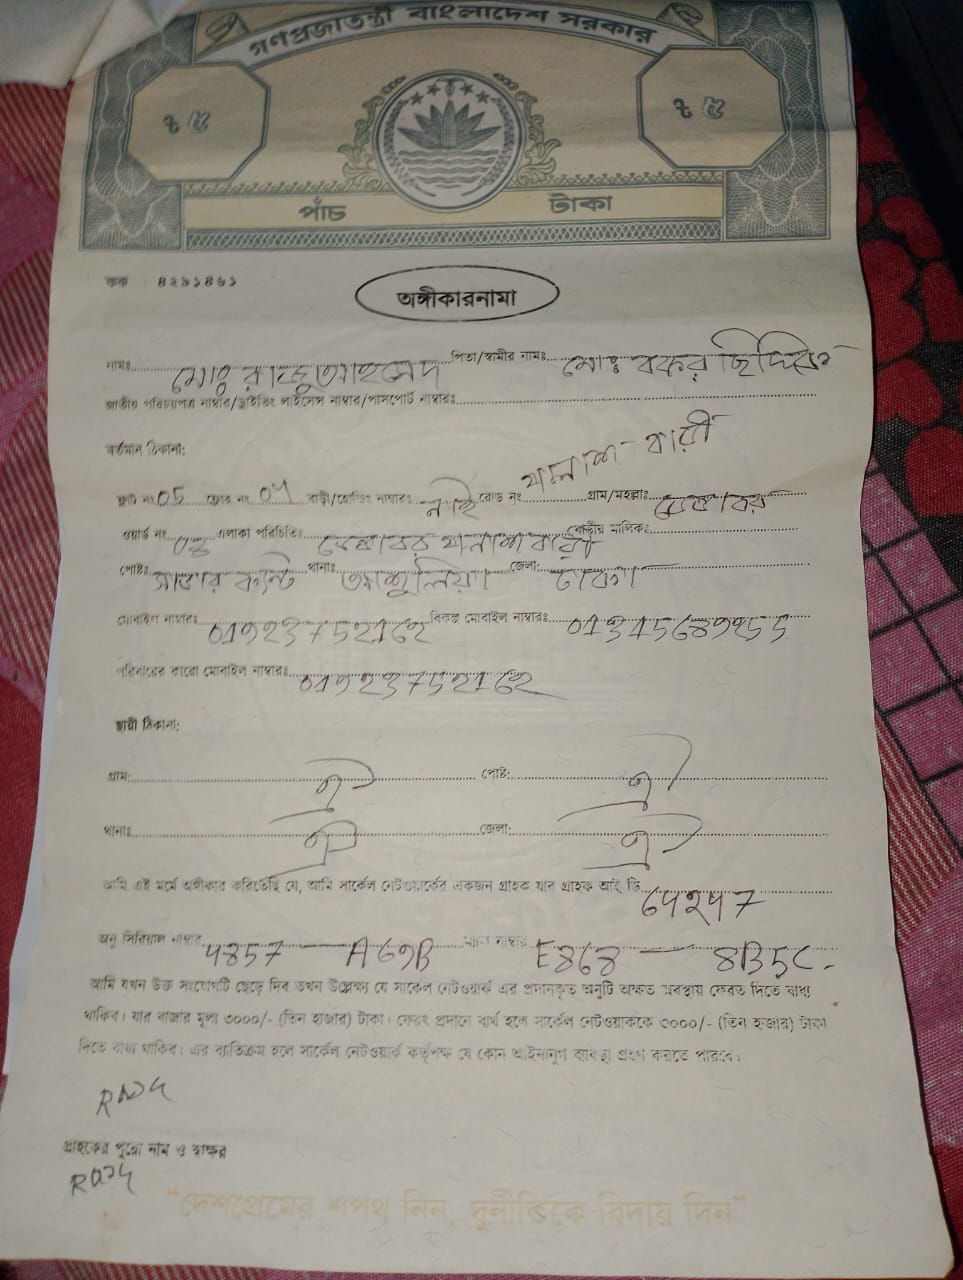 গণপ্রজাতন্ত্রী বাংলাদেশ সরকার
৳ ৫ ৳ ৫
পাঁচ টাকা
কক ৪২৯১৪৬১
অঙ্গীকারনামা
নামঃ মোঃ রাজু আহমেদ পিতা/স্বামীর নামঃ মোঃ বকর ছিদ্দিক
জাতীয় পরিচয়পত্র নাম্বার/ড্রাইভিং লাইসেন্স নাম্বার/পাসপোর্ট নাম্বারঃ
বর্তমান ঠিকানা:
ফ্ল্যাট নং 05 ফ্লোর নং বাড়ী/হোল্ডিং নাম্বারঃ নাই রোড নং পলাশ বাড়ী গ্রাম/মহল্লাঃ
ওয়ার্ড নং এলাকা পরিচিতিঃ বাড়ীর মালিক:
পোষ্টঃ সাভার ক্যান্ট থানাঃ আশুলিয়া জেলা: ঢাকা
মোবাইল নাম্বারঃ বিকল্প মোবাইল নাম্বারঃ
পরিবারের কারো মোবাইল নাম্বারঃ
স্থায়ী ঠিকানা:
গ্রাম: ঐ পোষ্ট: ঐ
থানাঃ ঐ জেলা: ঐ
আমি এই মর্মে অঙ্গীকার করিতেছি যে, আমি সার্কেল নেটওয়ার্কের একজন গ্রাহক যার গ্রাহক আই ডি
অনু সিরিয়াল নাম্বার ম্যাক নাম্বার
আমি যখন উক্ত সংযোগটি ছেড়ে দিব তখন উল্লেখ্য যে সার্কেল নেটওয়ার্ক এর প্রদানকৃত অনুটি অক্ষত অবস্থায় ফেরত দিতে বাধ্য
থাকিব। যার বাজার মূল্য ৩০০০/- (তিন হাজার) টাকা। ফেরৎ প্রদানে ব্যর্থ হলে সার্কেল নেটওয়ার্ককে ৩০০০/- (তিন হাজার) টাকা
দিতে বাধ্য থাকিব। এর ব্যতিক্রম হলে সার্কেল নেটওয়ার্ক কর্তৃপক্ষ যে কোন আইনানুগ ব্যবস্থা গ্রহণ করতে পারবে।
গ্রাহকের পুরো নাম ও স্বাক্ষর
“দেশপ্রেমের শপথ নিন, দুর্নীতিকে বিদায় দিন”